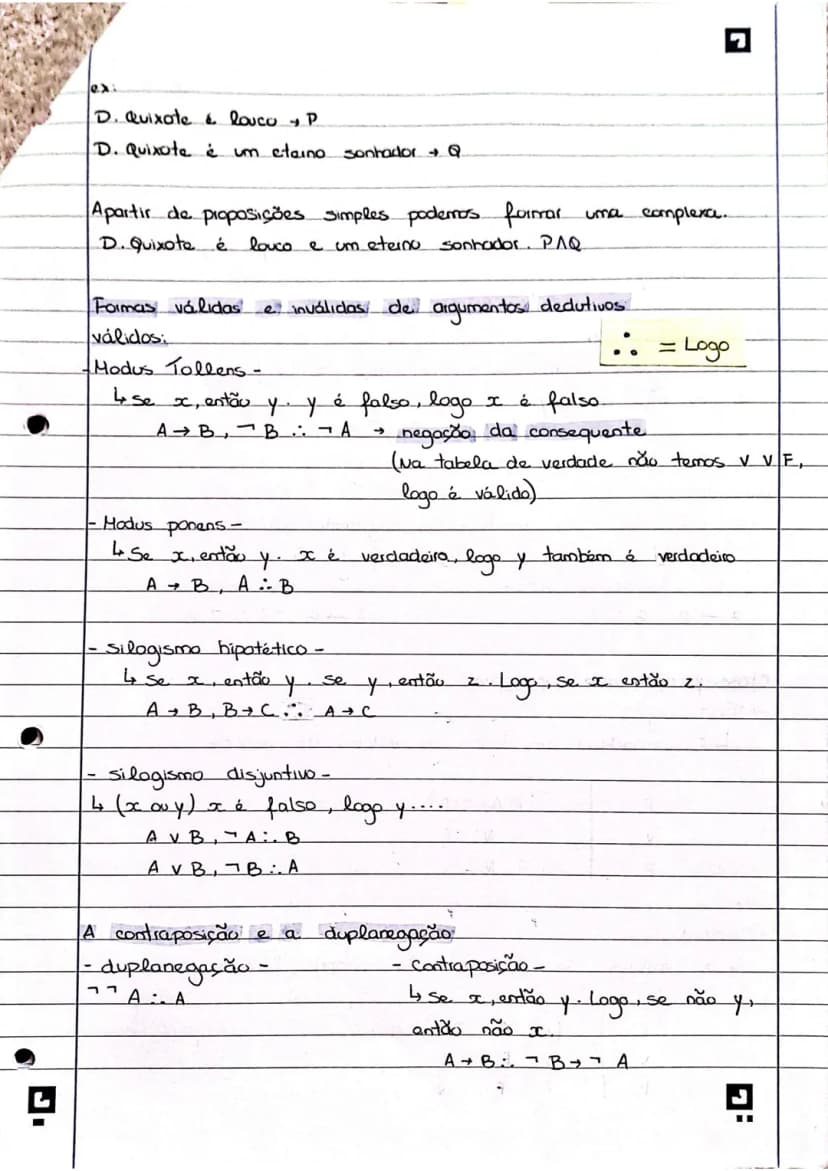 ex:
D. Quixote é louco → P
D. Quixote é um eterno sonhador → Q
Apartir de proposições simples podemos formar uma complexa.
D. Quixote é louco e um eterno sonhador. P∧Q
Formas válidas e inválidas de argumentos dedutivos
válidos:
∴ = Logo
- Modus Tollens -
↳ se x, então y. y é falso, logo x é falso.
A → B, ¬B ∴ ¬A → negação da consequente
(Na tabela de verdade não temos V V F,
logo é válido)
- Modus ponens -
↳ Se x, então y. x é verdadeira, logo y também é verdadeiro
A → B, A ∴ B
- silogismo hipotético -
↳ se x, então y. se y, então z. Logo, se x então z.
A → B, B → C ∴ A → C
- silogismo disjuntivo -
↳ (x ou y) x é falso, logo y....
A ∨ B, ¬A ∴ B
A ∨ B, ¬B ∴ A
A contraposição e a duplanegação
- duplanegação -
¬¬A ∴ A
- Contraposição -
↳ se x, então y. Logo, se não y,
então não x.
A → B ∴ ¬B → ¬A